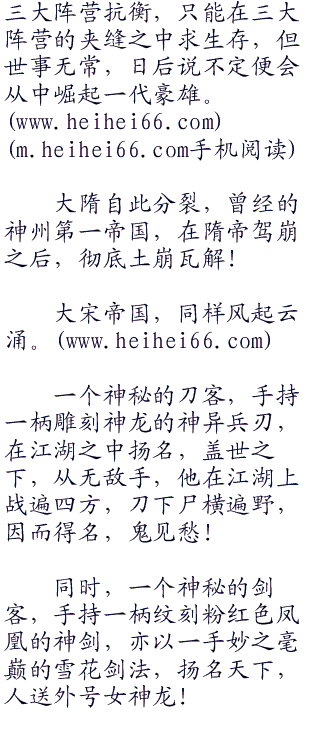 三大阵营抗衡，只能在三大
阵营的夹缝之中求生存，但
世事无常，日后说不定便会
从中崛起一代豪雄。
(www.heihei66.com)
(m.heihei66.com手机阅读)
大隋自此分裂，曾经的
神州第一帝国，在隋帝驾崩
之后，彻底土崩瓦解！
大宋帝国，同样风起云
涌。(www.heihei66.com)
一个神秘的刀客，手持
一柄雕刻神龙的神异兵刃，
在江湖之中扬名，盖世之
下，从无敌手，他在江湖上
战遍四方，刀下尸横遍野，
因而得名，鬼见愁！
同时，一个神秘的剑
客，手持一柄纹刻粉红色凤
凰的神剑，亦以一手妙之毫
巅的雪花剑法，扬名天下，
人送外号女神龙！